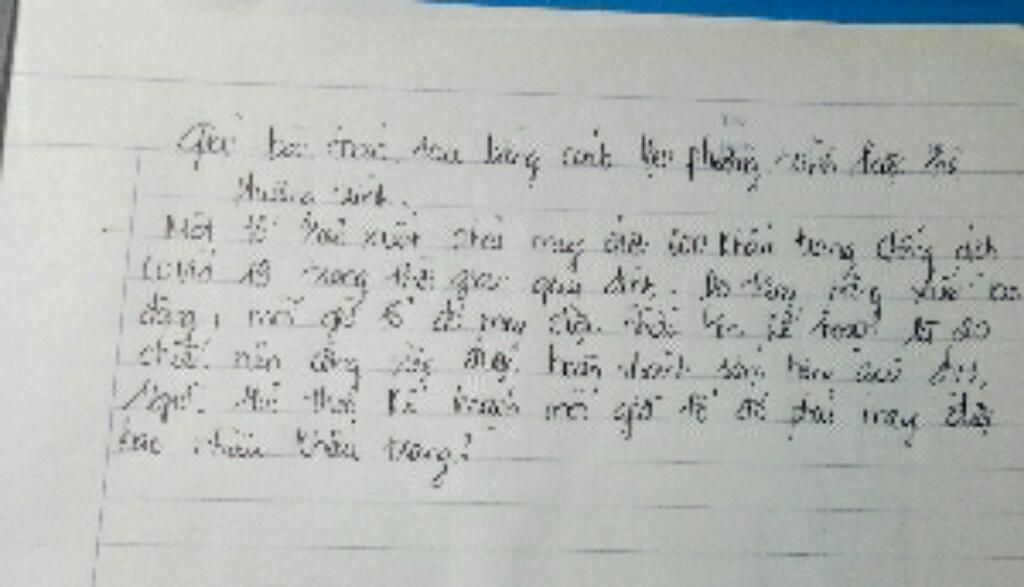 Giải bài toán sau bằng cách lập phương trình hoặc hệ
phương trình.
Một tổ sản xuất phải may được 600 khẩu trang chống dịch
COVID 19 trong thời gian quy định. Do tăng năng suất lao
động, mỗi giờ tổ đó may được nhiều hơn kế hoạch
chiếc nên công việc được hoàn thành sớm hơn quy định
Hỏi theo kế hoạch mỗi giờ tổ đó phải may được
bao nhiêu khẩu trang?